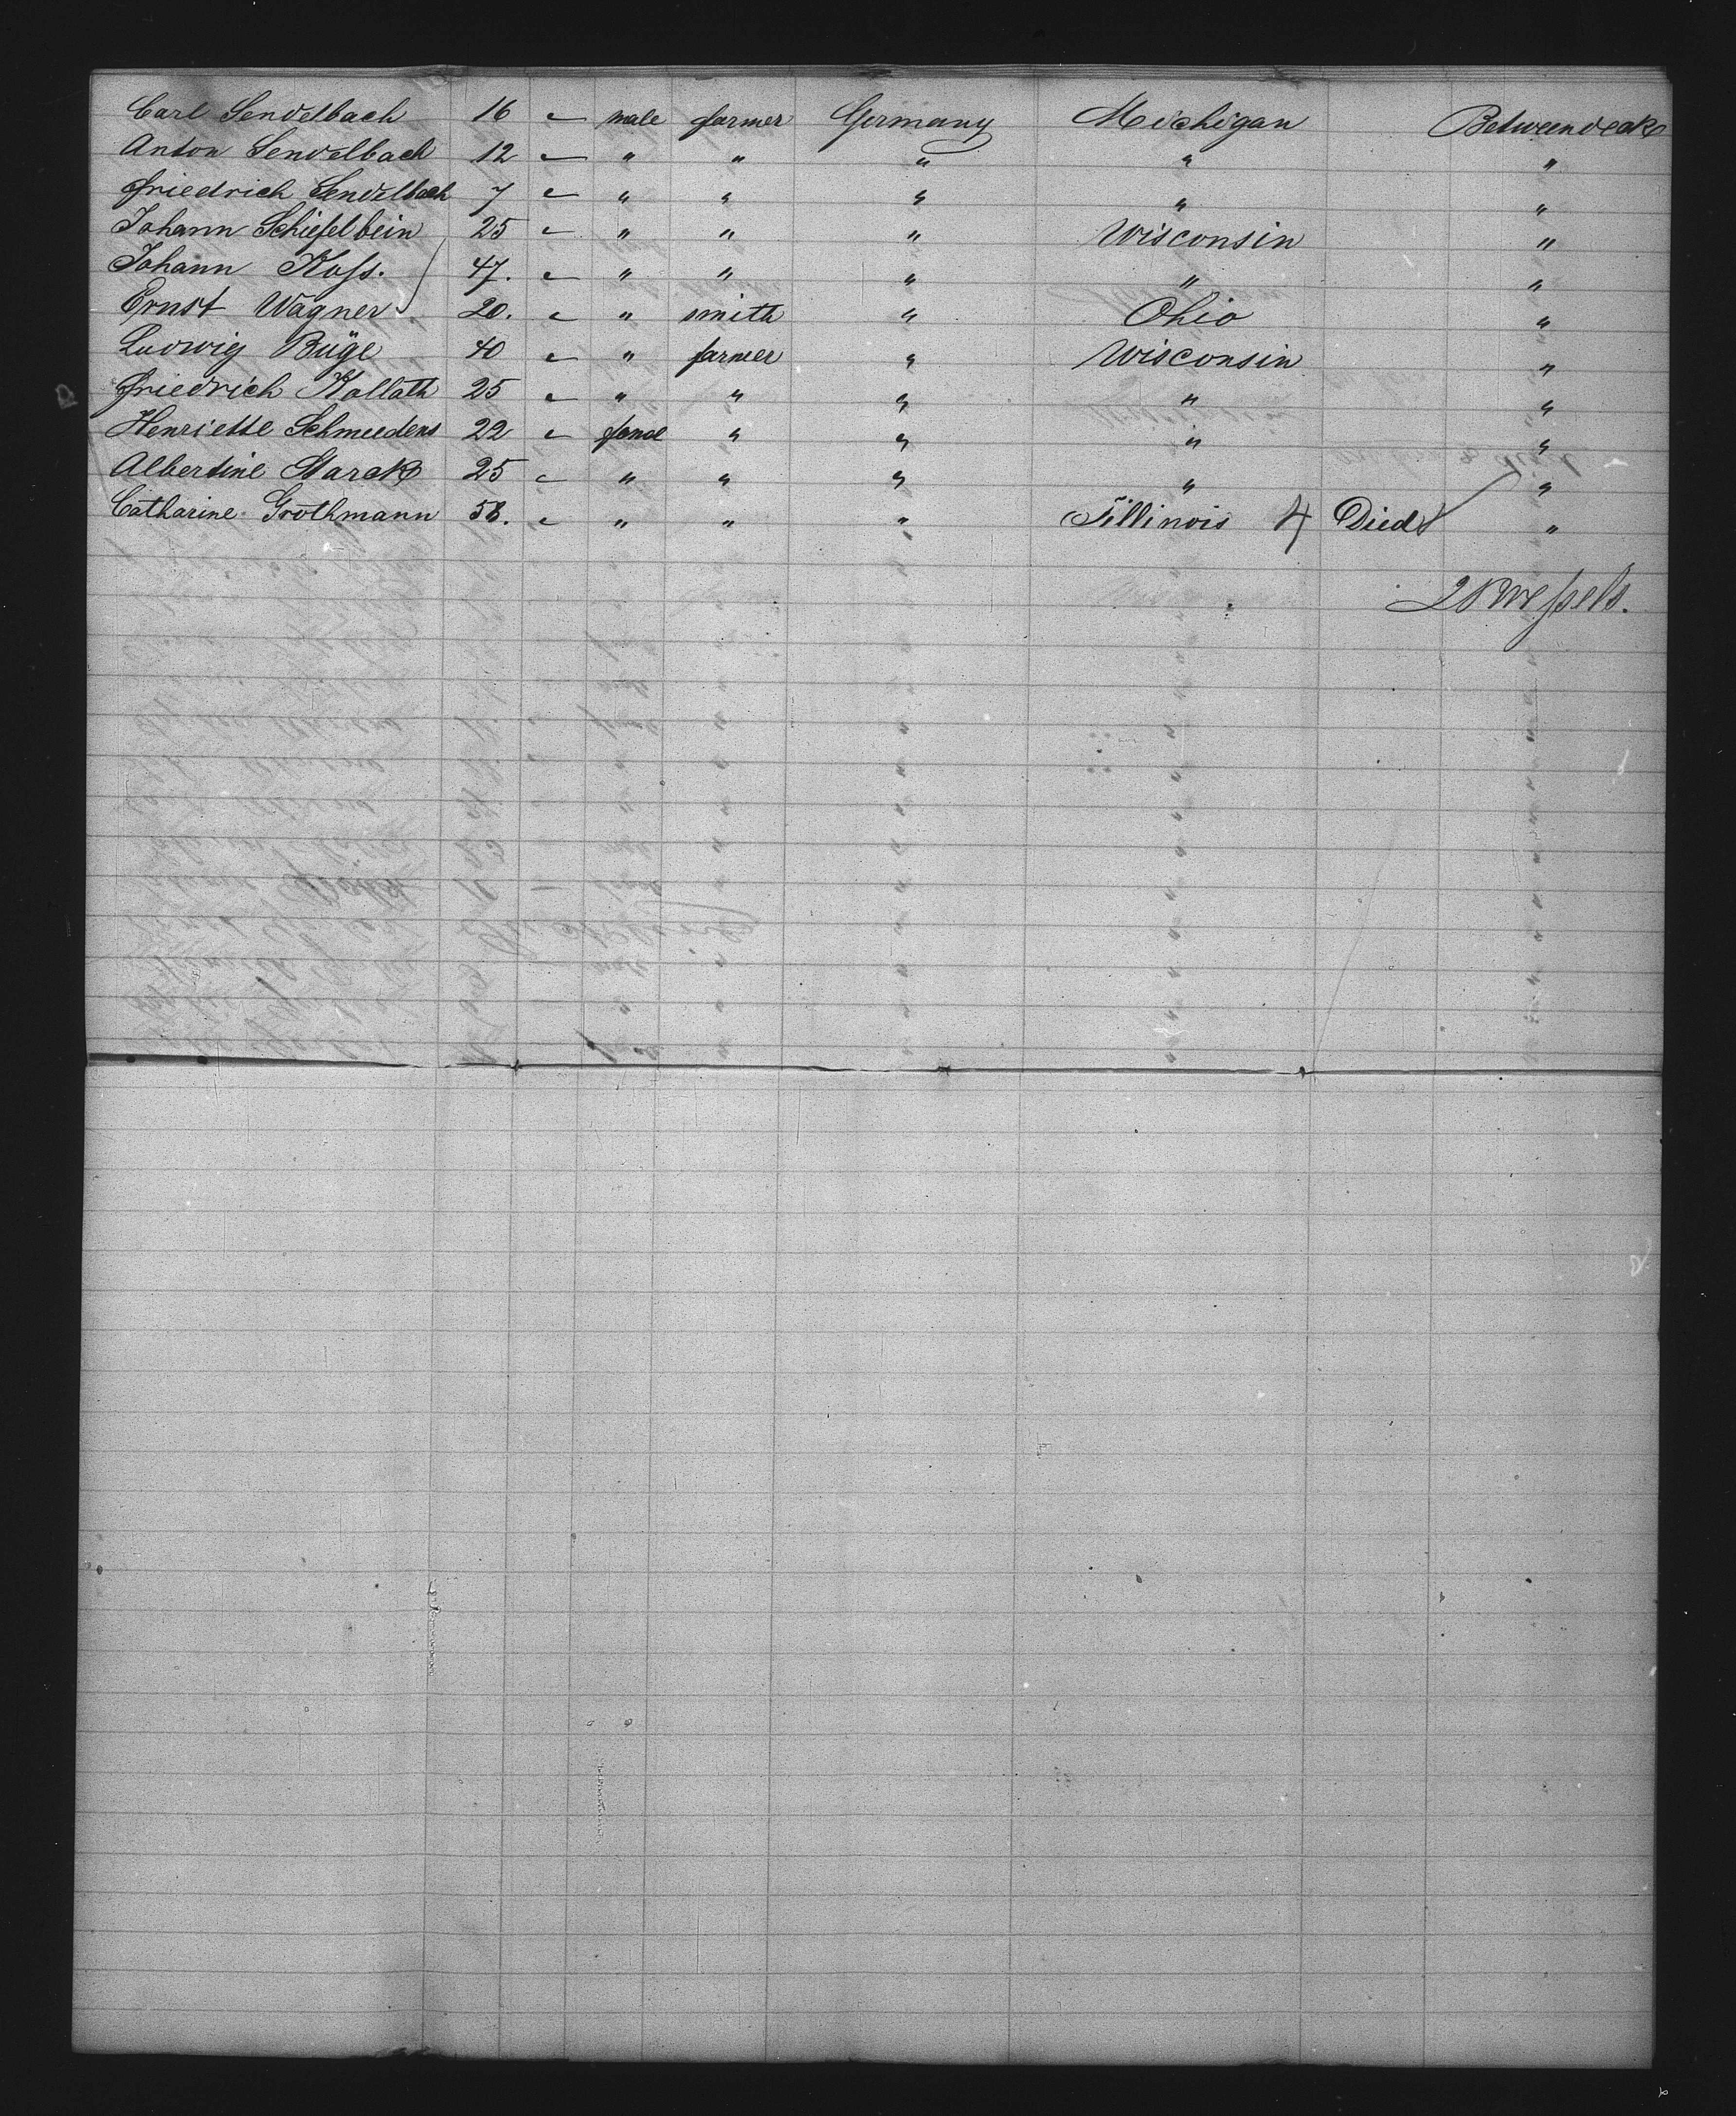 Carl Sendelbach 16 " male farmer Germany Michigan Betweendeck
Anton Sendelbach 12 " " " " " "
Friedrich Sendelbach 7 " " " " " "
Johann Schiefelbein 25 " " " " Wisconsin "
Johann Koss. 47. " " " " " "
Ernst Wagner 20. " " smith " Ohio "
Ludwig Büge 40 " " farmer " Wisconsin "
Friedrich Kollath 25 " " " " " "
Henriette 22 " " " " "
Albertine Starck 25 " " " " " "
Catharine Grothmann 58. " " " " Illinois 4 Died "